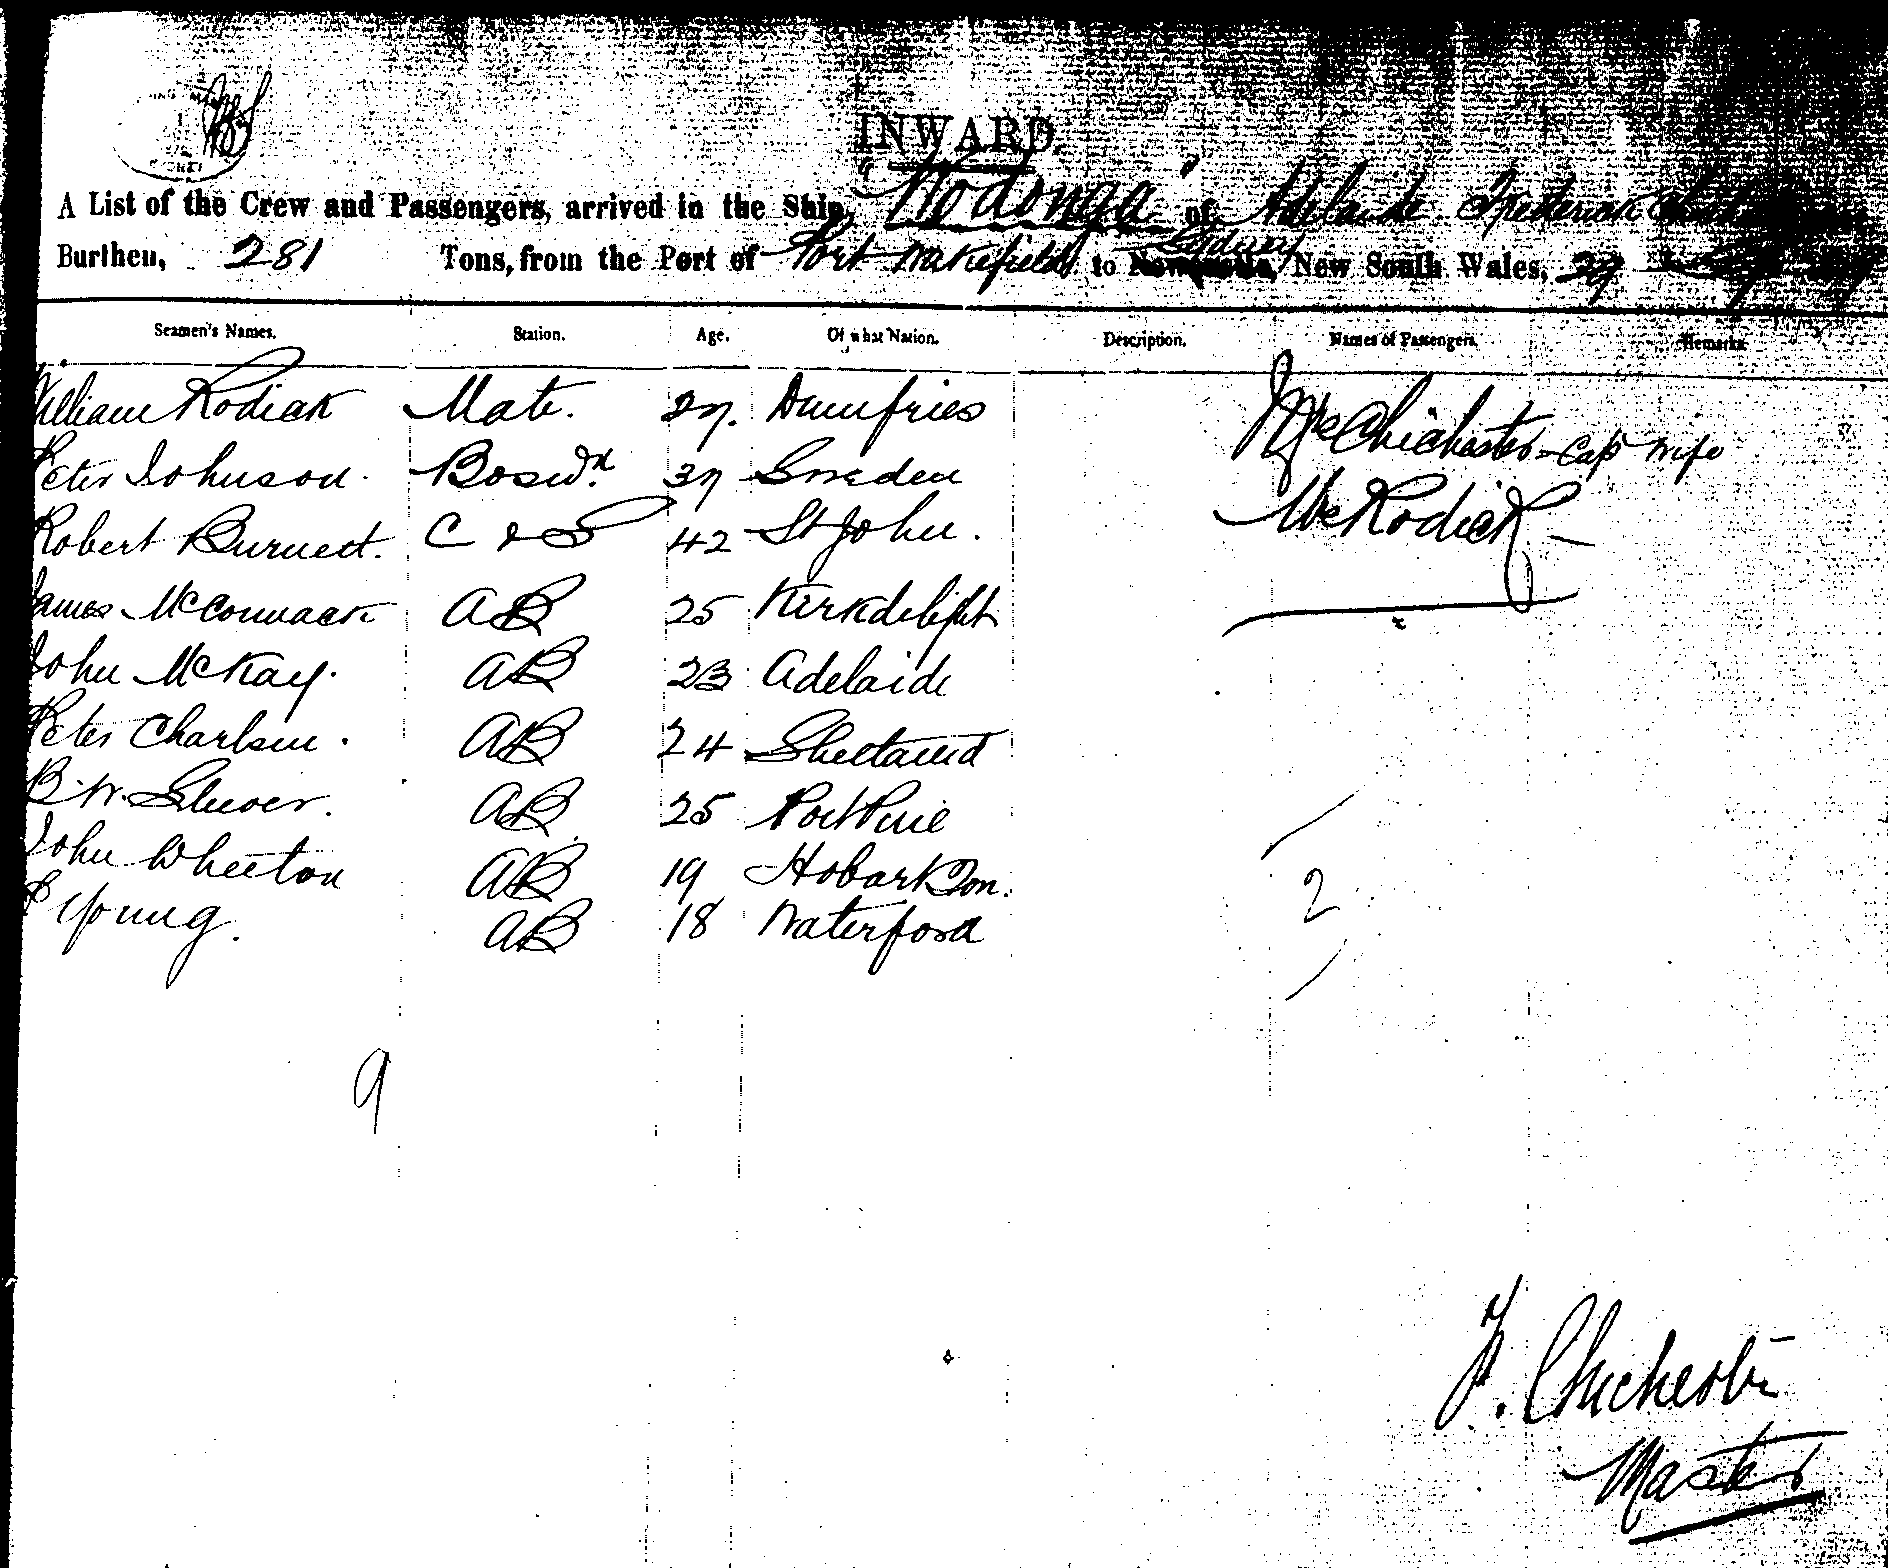 INWARD.
A List of the Crew and Passengers, arrived in the Ship, "Wodonga" of Adelaide Frederick
Burthen, 281 Tons, from the Port of Port Wakefield to Sydney New South Wales, 29
Seamen's Names. Station. Age. Of what Nation. Description. Names of Passengers. Remarks
William Rodiak Mate. 27. Dumfries Mrs Chichester - Cap Wife
Peter Johnson. Boswn. 37 Sweden Mr Rodick
Robert Burnett. C & S 42 St John.
James McCormack AB 25
John McKay. AB 23 Adelaide
Peter Charlsen. AB 24 Shetland
B. W. AB 25 Port Pirie
John Wheeton AB 19 Hobart Ton.
Young. AB 18 Waterford
2
9
F. Chichester
Master